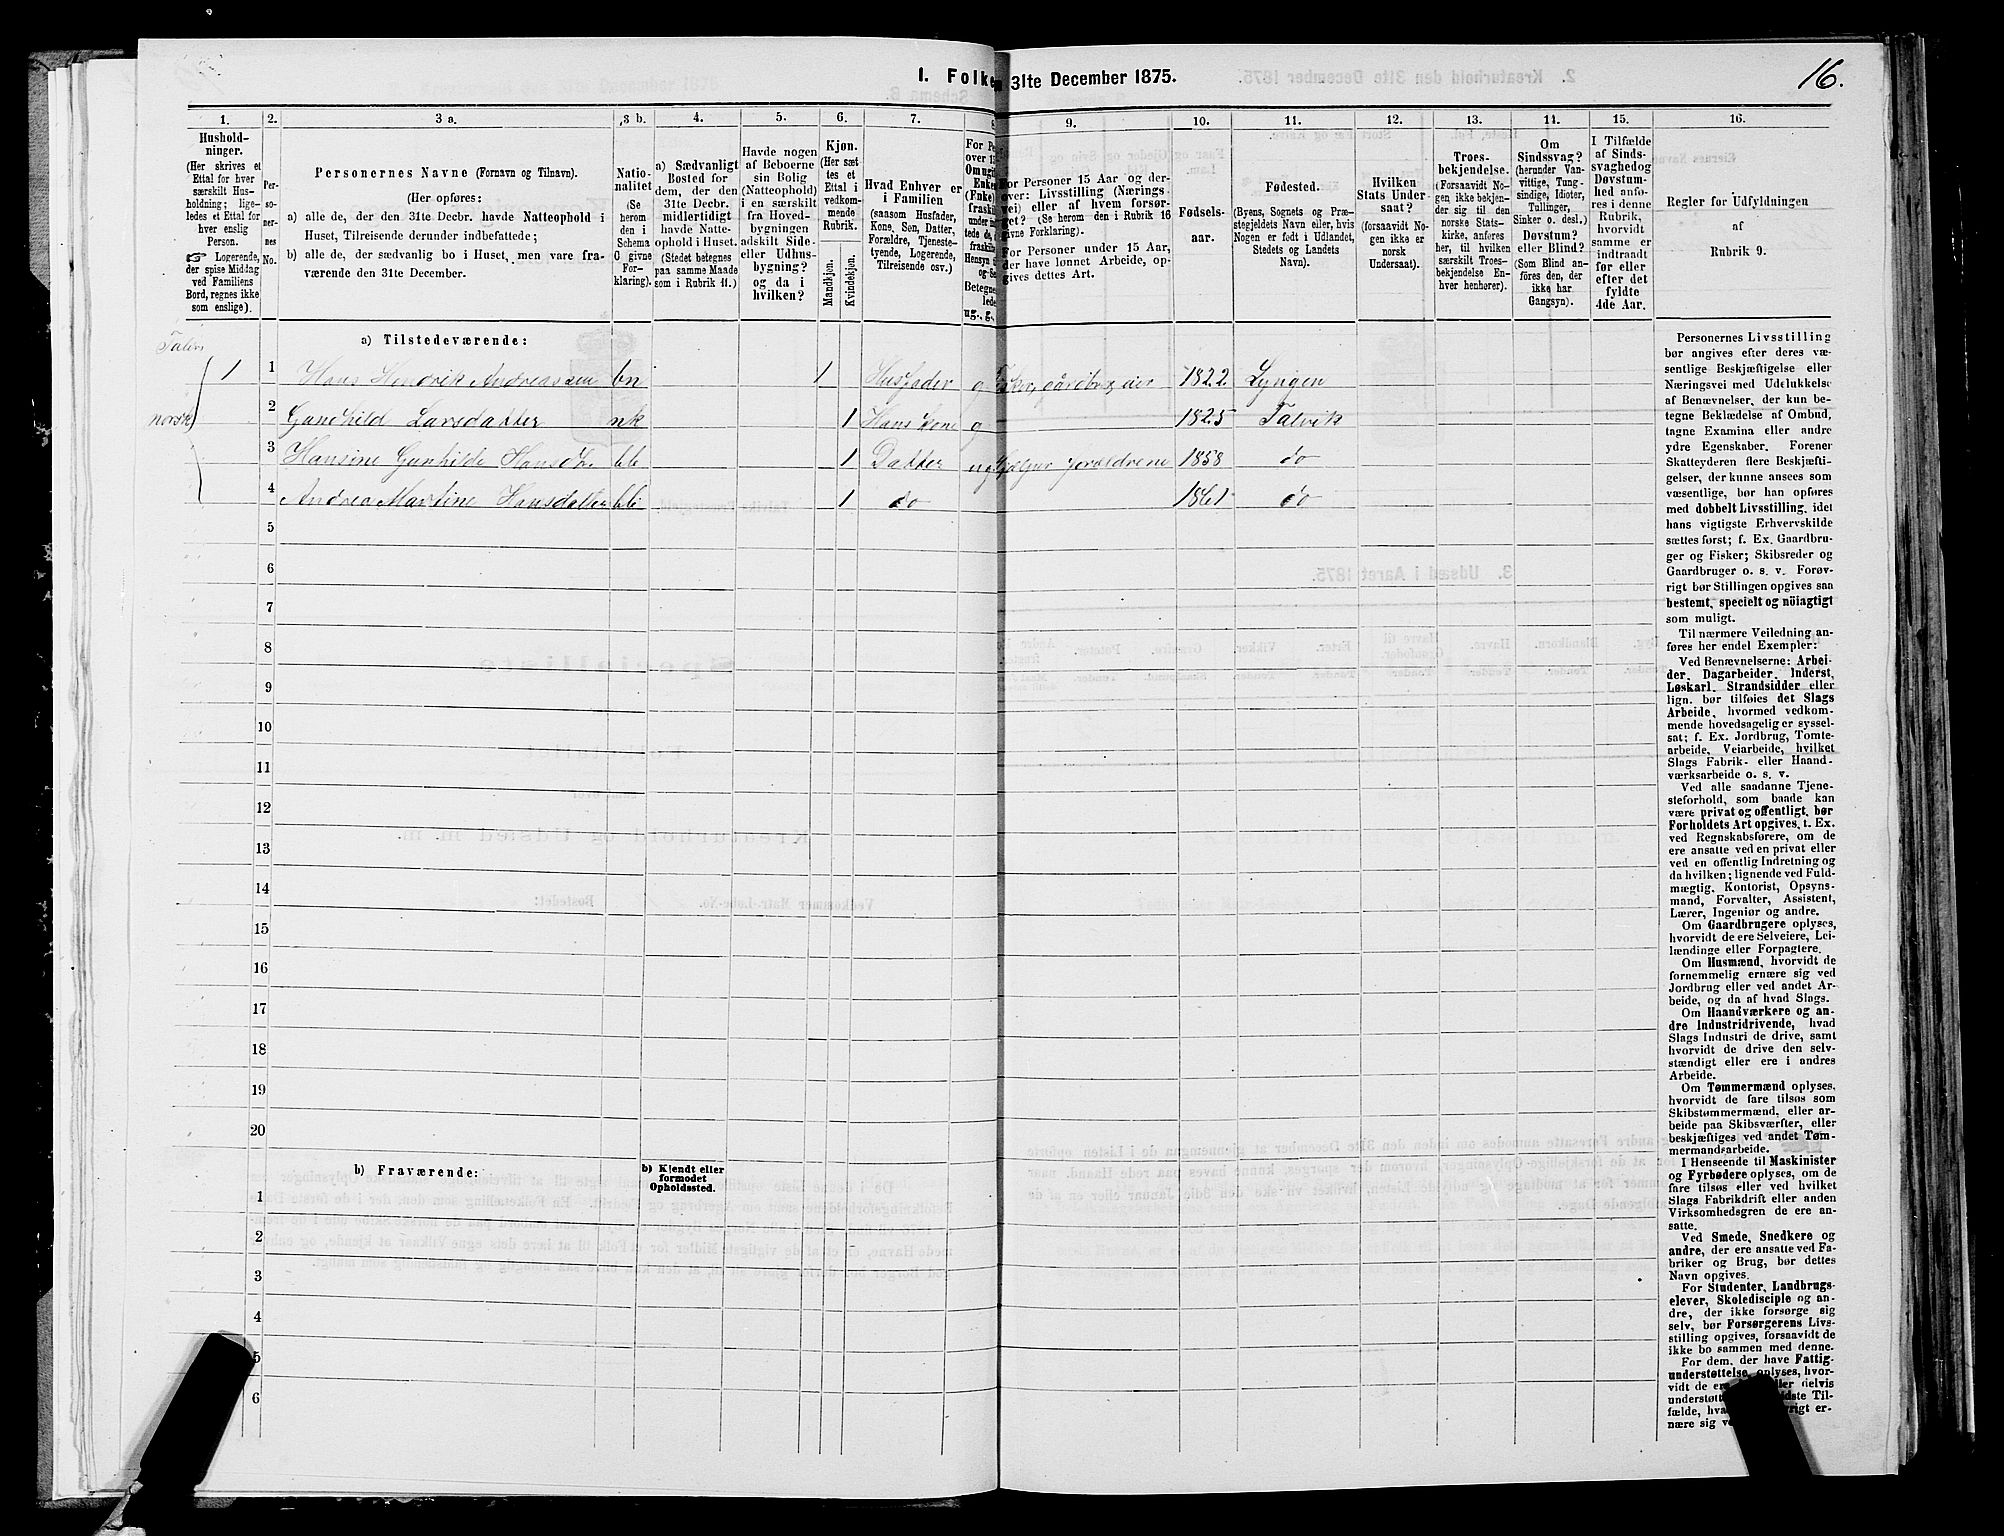 1. Folke 31te December 1875.
16.
1. 2. 3 a. 3 b. 4. 5. 6. 7. 8 9. 10. 11. 12. 13. 11. 15. 16.
Hushold-
ninger.
(Her skrives et
Ettal for hver
særskilt Hus-
holdning; lige-
ledes et Ettal for
hver enslig
Person.
☞ Logerende,
der spise Middag
ved Familiens
Bord, regnes ikke
som enslige).
Per-
so-
ner-
nes
No.
Personernes Navne (Fornavn og Tilnavn).
(Her opføres:
a) alle de, der den 31te Decbr. havde Natteophold i
Huset, Tilreisende derunder indbefattede;
b) alle de, der sædvanlig bo i Huset, men vare fra-
værende den 31te December.
Natio-
nalitet
(Se
herom
den i
Schema
C givne
For-
klaring).
a) Sædvanligt
Bosted for
dem, der den
31te Decbr.
midlertidigt
havde Natte-
ophold i Huset.
(Stedet betegnes
paa samme Maade
som i Rubrik 11.)
Havde nogen
af Beboerne
sin Bolig
(Natteophold)
i en særskilt
fra Hoved-
bygningen
adskilt Side-
eller Udhus-
bygning? og da i
hvilken?
Kjøn.
(Her sæt
tes et
Ettal i
vedkom-
mende
Rubrik.
Mandkjøn.
Kvindekjøn.
Hvad Enhver er
i Familien
(saasom Husfader,
Kone, Søn, Datter,
Forældre, Tjeneste-
tyende, Logerende,
Tilreisende osv.)
For Personer 15 Aar og der-
over: Livsstilling (Nærings-
vei) eller af hvem forsør-
get? (Se herom den i Rubrik 16
givne Forklaring).
For Personer under 15 Aar,
der have lønnet Arbeide, op-
gives dettes Art.
Fødsels-
aar.
Fødested.
(Byens, Sognets og Præ-
stegjeldets Navn eller, hvis
Nogen er født i Udlandet,
Stedets og Landets
Navn).
Hvilken
Stats Under-
saat?
(forsaavidt No-
gen ikke er
norsk
Undersaat).
Troes-
bekjendelse.
(Forsaavidt No-
gen ikke bekjen-
der sig til den
norske Stats-
kirke, anføres
her, til hvilken
særskilt Troes-
bekjendelse En-
hver henhører).
Om
Sindssvag?
(herunder Van-
vittige, Tung-
sindige, Idioter,
Tullinger,
Sinker o. desl.)
Døvstum?
eller Blind?
(Som Blind an-
føres den, der
ikke har
Gangsyn).
I Tilfælde
af Sinds-
svaghed og
Døvstum-
hed anfø-
res i denne
Rubrik,
hvorvidt
samme er
indtraadt
før eller
efter det
fyldte
4de Aar.
Regler for Udfyldningen
af
Rubrik 9.
a) Tilstedeværende:
1 1 Hans Hendrik Andreassen bn 1 Husfader g Fisker, gårdbr, eier 1822 Lyngen
norsk 2 Gunhild Larsdatter nk 1 Hans kone g 1825 Talvik
3 Hansine Gunhilde Hansd. bb 1 Datter ug Hjælper forældrene 1858 do
4 Andrea Martine Hansdatter bb 1 do 1861 do
5
6
7
8
9
10
11
12
13
14
15
16
17
18
19
20
b) Fraværende:
b) Kjendt eller
formodet
Opholdssted.
1
2
3
4
5
6
Personernes Livsstilling
bør angives efter deres væ-
sentlige Beskjæftigelse eller
Næringsvei med Udelukkelse
af Benævnelser, der kun be-
tegne Beklædelse af Ombud,
tagne Examina eller andre
ydre Egenskaber. Forener
Skatteyderen flere Beskjæfti-
gelser, der kunne ansees som
væsentlige, bør han opføres
med dobbelt Livsstilling, idet
hans vigtigste Erhvervskilde
sættes først; f. Ex. Gaardbru-
ger og Fisker; Skibsreder og
Gaardbruger o. s. v. Forøv-
rigt bør Stillingen opgives saa
bestemt, specielt og nöiagtigt
som muligt.
Til nærmere Veiledning an-
føres her endel Exempler:
Ved Benævnelserne: Arbei-
der, Dagarbeider, Inderst,
Løskarl, Strandsidder eller
lign. bør tilføies det Slags
Arbeide, hvormed vedkom-
mende hovedsagelig er syssel-
sat; f. Ex. Jordbrug, Tomte-
arbeide, Veiarbeide, hvilket
Slags Fabrik- eller Haand-
værksarbeide o. s. v.
Ved alle saadanne Tjene-
steforhold, som baade kan
være privat og offentligt, bør
Forholdets Art opgives, t. Ex.
ved Regnskabsførere, om de
ere ansatte ved en privat eller
ved en offentlig Indretning og
da hvilken; lignende ved Fuld-
mægtig, Kontorist, Opsyns-
mand, Forvalter, Assistent,
Lærer, Ingeniør og andre.
Om Gaardbrugere oplyses,
hvorvidt de ere Selveiere, Lei-
lændinge eller Forpagtere.
Om Husmænd, hvorvidt de
fornemmelig ernære sig ved
Jordbrug eller ved andet Ar-
beide, og da af hvad Slags.
Om Haandværkere og an-
dre Industridrivende, hvad
Slags Industri de drive, samt
hvorvidt de drive den selv-
stændigt eller ere i andres
Arbeide.
Om Tømmermænd oplyses,
hvorvidt de fare tilsøs som
Skibstømmermænd, eller ar-
beide paa Skibsværfter, eller
beskjæftiges ved andet Tøm-
mermandsarbeide.
I Henseende til Maskinister
og Fyrbødere oplyses, om de
fare tilsøs eller ved hvilket
Slags Fabrikdrift eller anden
Virksomhedsgren de ere an-
satte.
Ved Smede, Snedkere og
andre, der ere ansatte ved Fa-
briker og Brug, bør dettes
Navn opgives.
For Studenter, Landbrugs-
elever, Skoledisciple og an-
dre, der ikke forsørge sig
selv, bør Forsørgerens Livs-
stilling opgives, forsaavidt de
ikke bo sammen med denne.
For dem, der have Fattig-
understøttelse, oplyses, hvor-